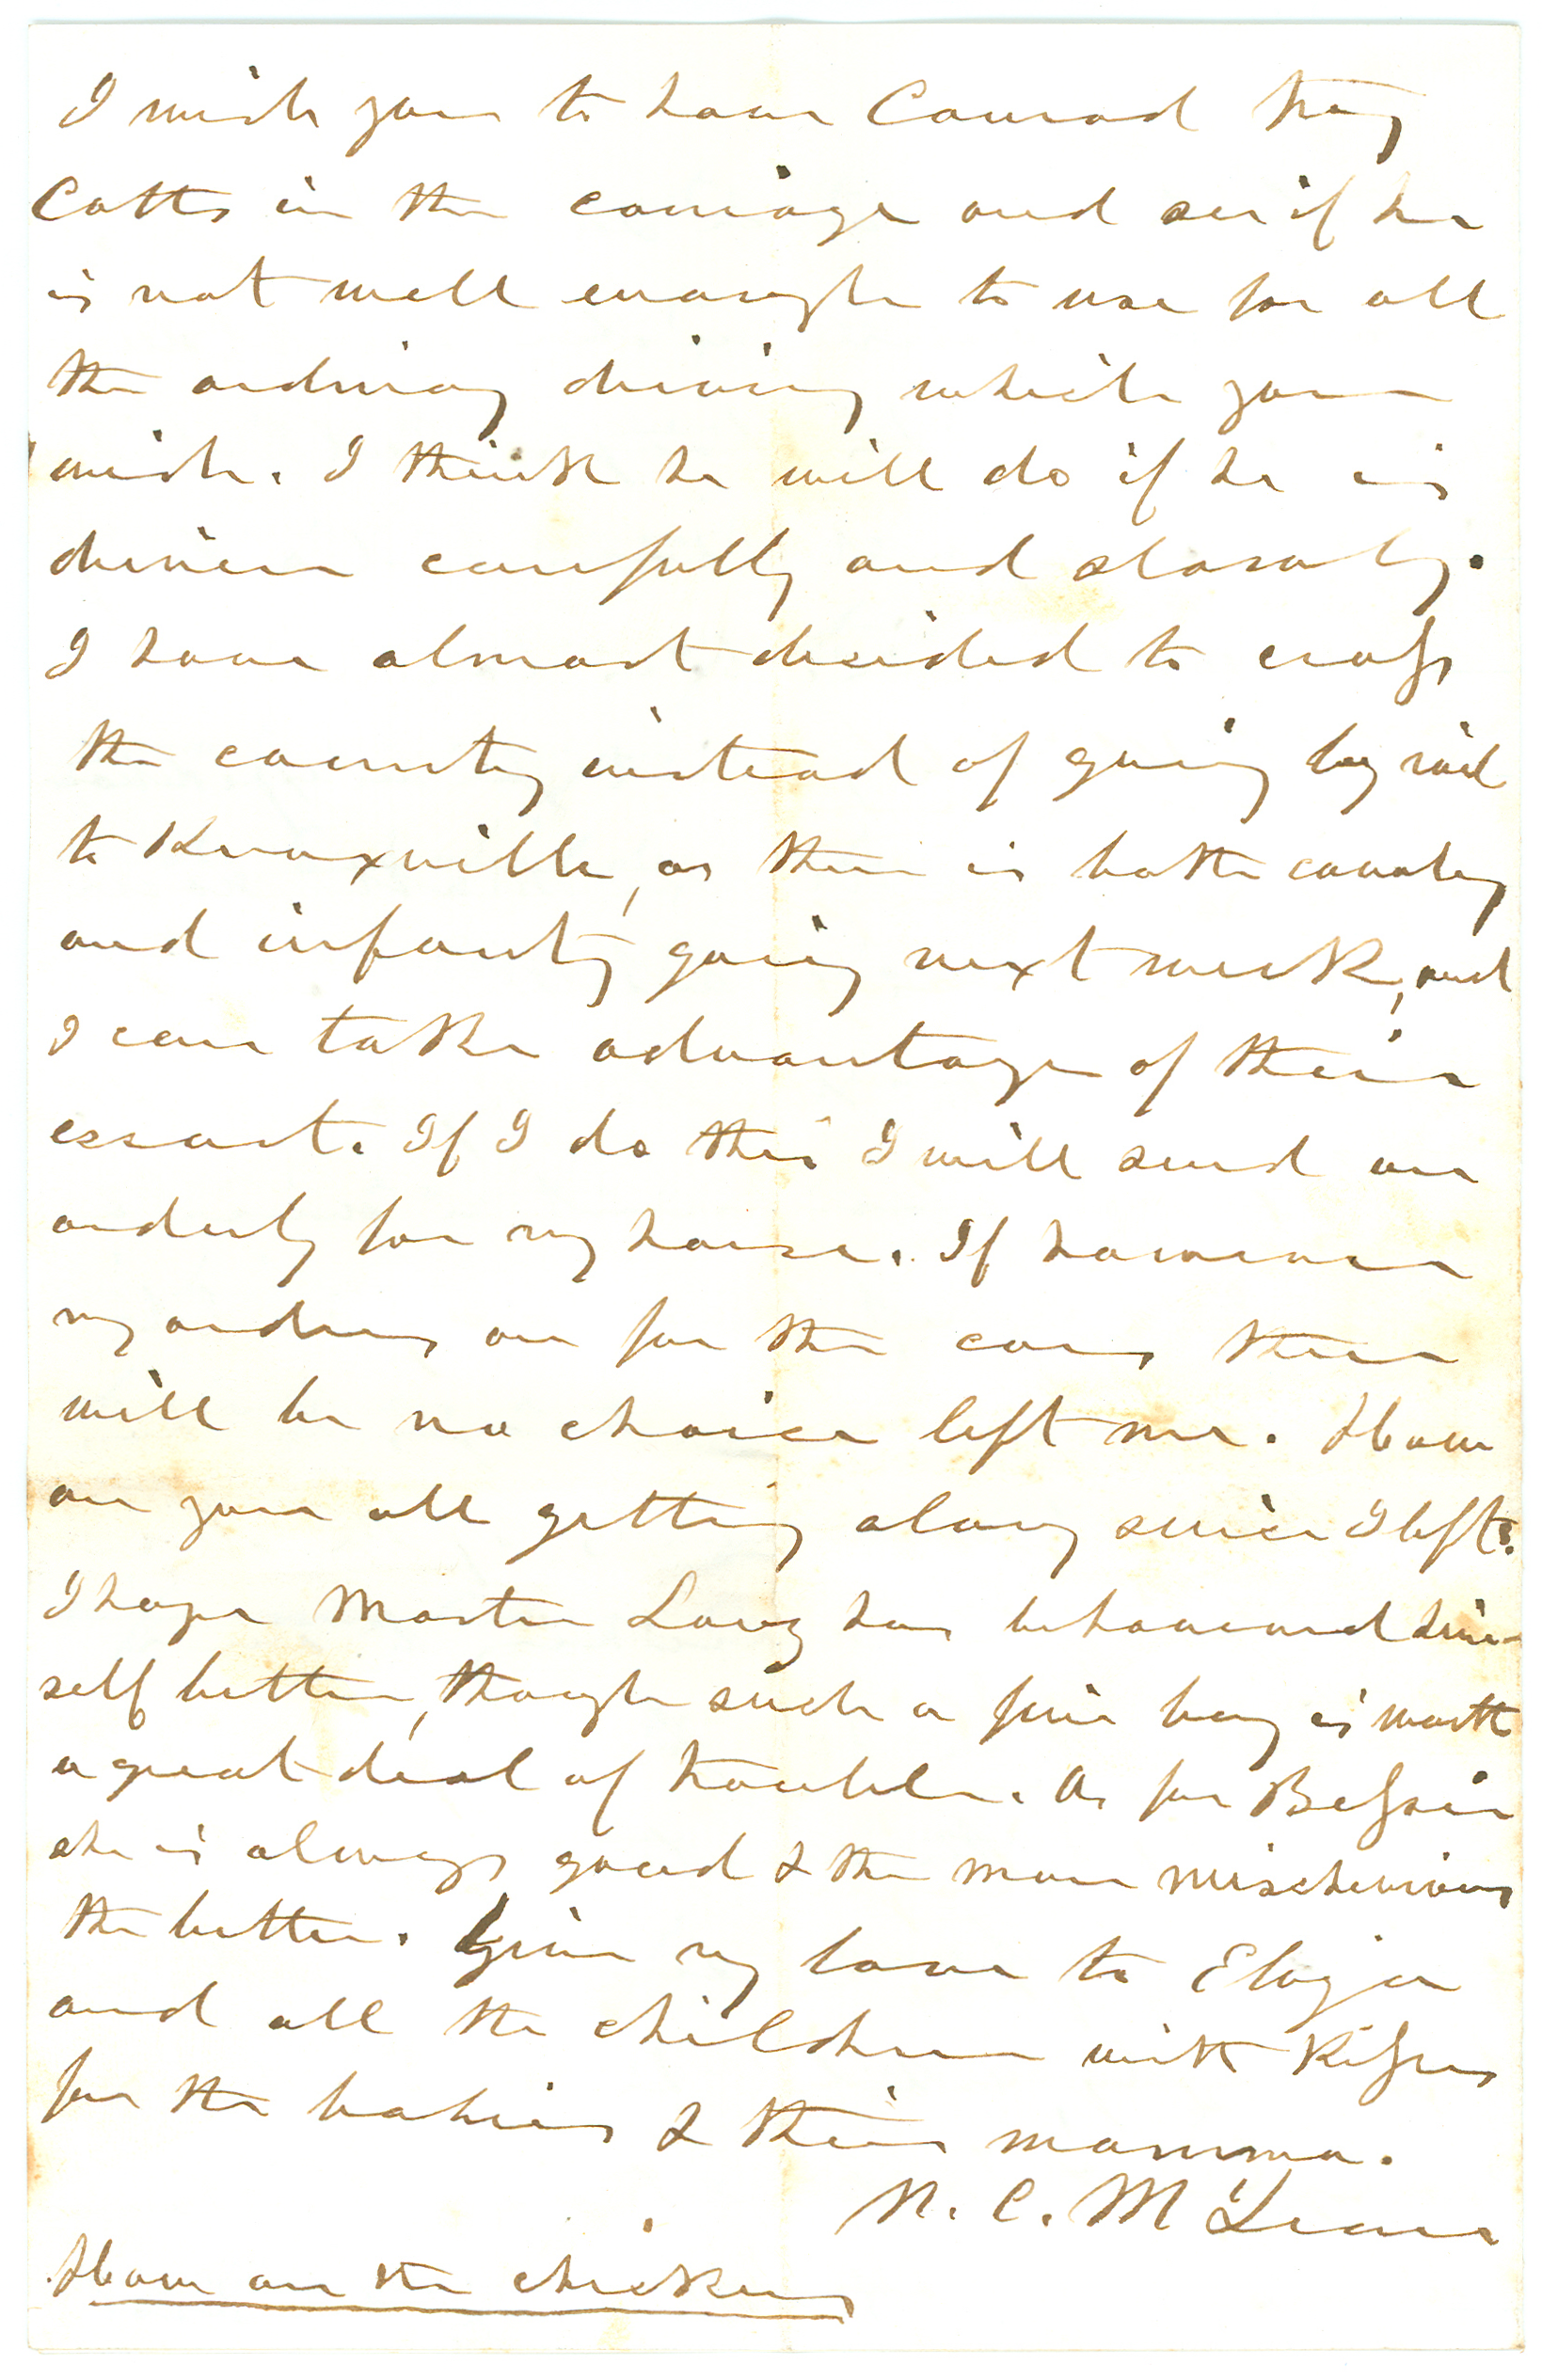 I wish you to have Conrad try
Cotts in the carriage and see if he
is not well enough to use for all
the ordinary driving which you
wish. I think he will do if he is
driven carefully and slowly.
I have almost decided to cross
the country instead of going by rail
to Knoxville, as there is both cavalry
and infantry going next week, and
I can take advantage of their
escort. If I do this I will send an
orderly for my horse. If however
my orders are for the cars there
will be no choice left me. How
are you all getting along since I left?
I hope Master Larz has behaved him-
self better, though such a fine boy is worth
a great deal of trouble. As for Bessie
she is always good & the more mischevious
the better. Give my love to Eliza
and all the children with kisses
for the babies & their mamma.
N. C. McLean
How are the chickens